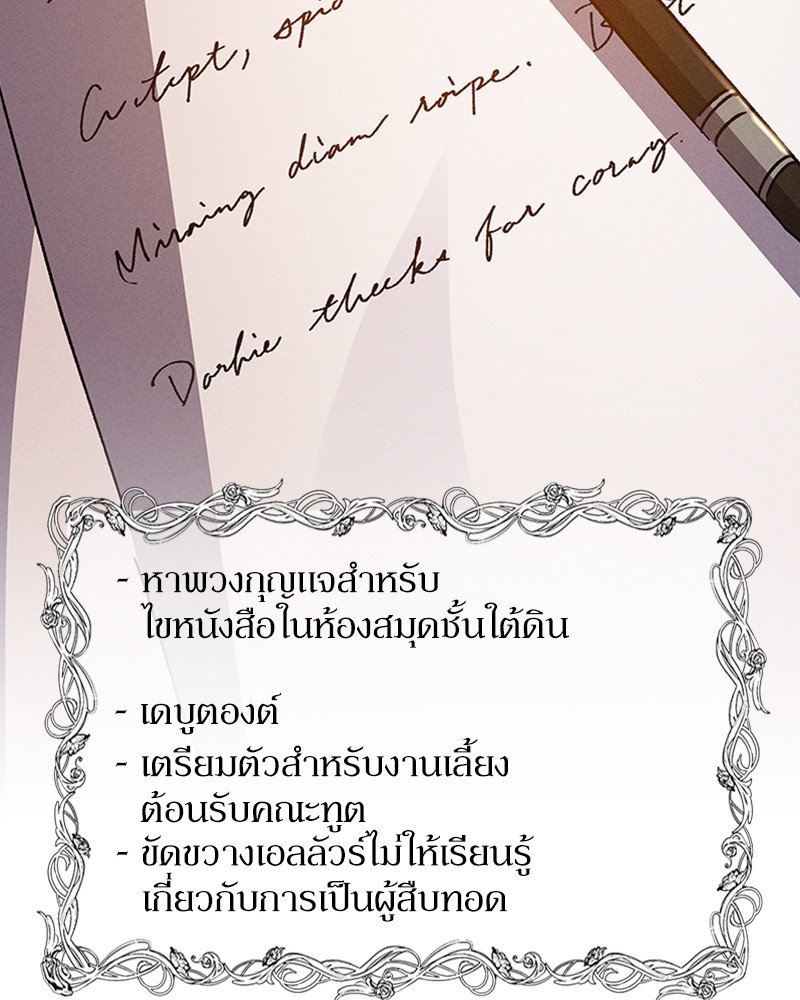 Miraing diam roipe.
Dorhie theeks far coray.
- หาพวงกุญแจสำหรับ
ไขหนังสือในห้องสมุดชั้นใต้ดิน
- เดบูตองต์
- เตรียมตัวสำหรับงานเลี้ยง
ต้อนรับคณะทูต
- ขัดขวางเอลลัวร์ไม่ให้เรียนรู้
เกี่ยวกับการเป็นผู้สืบทอด